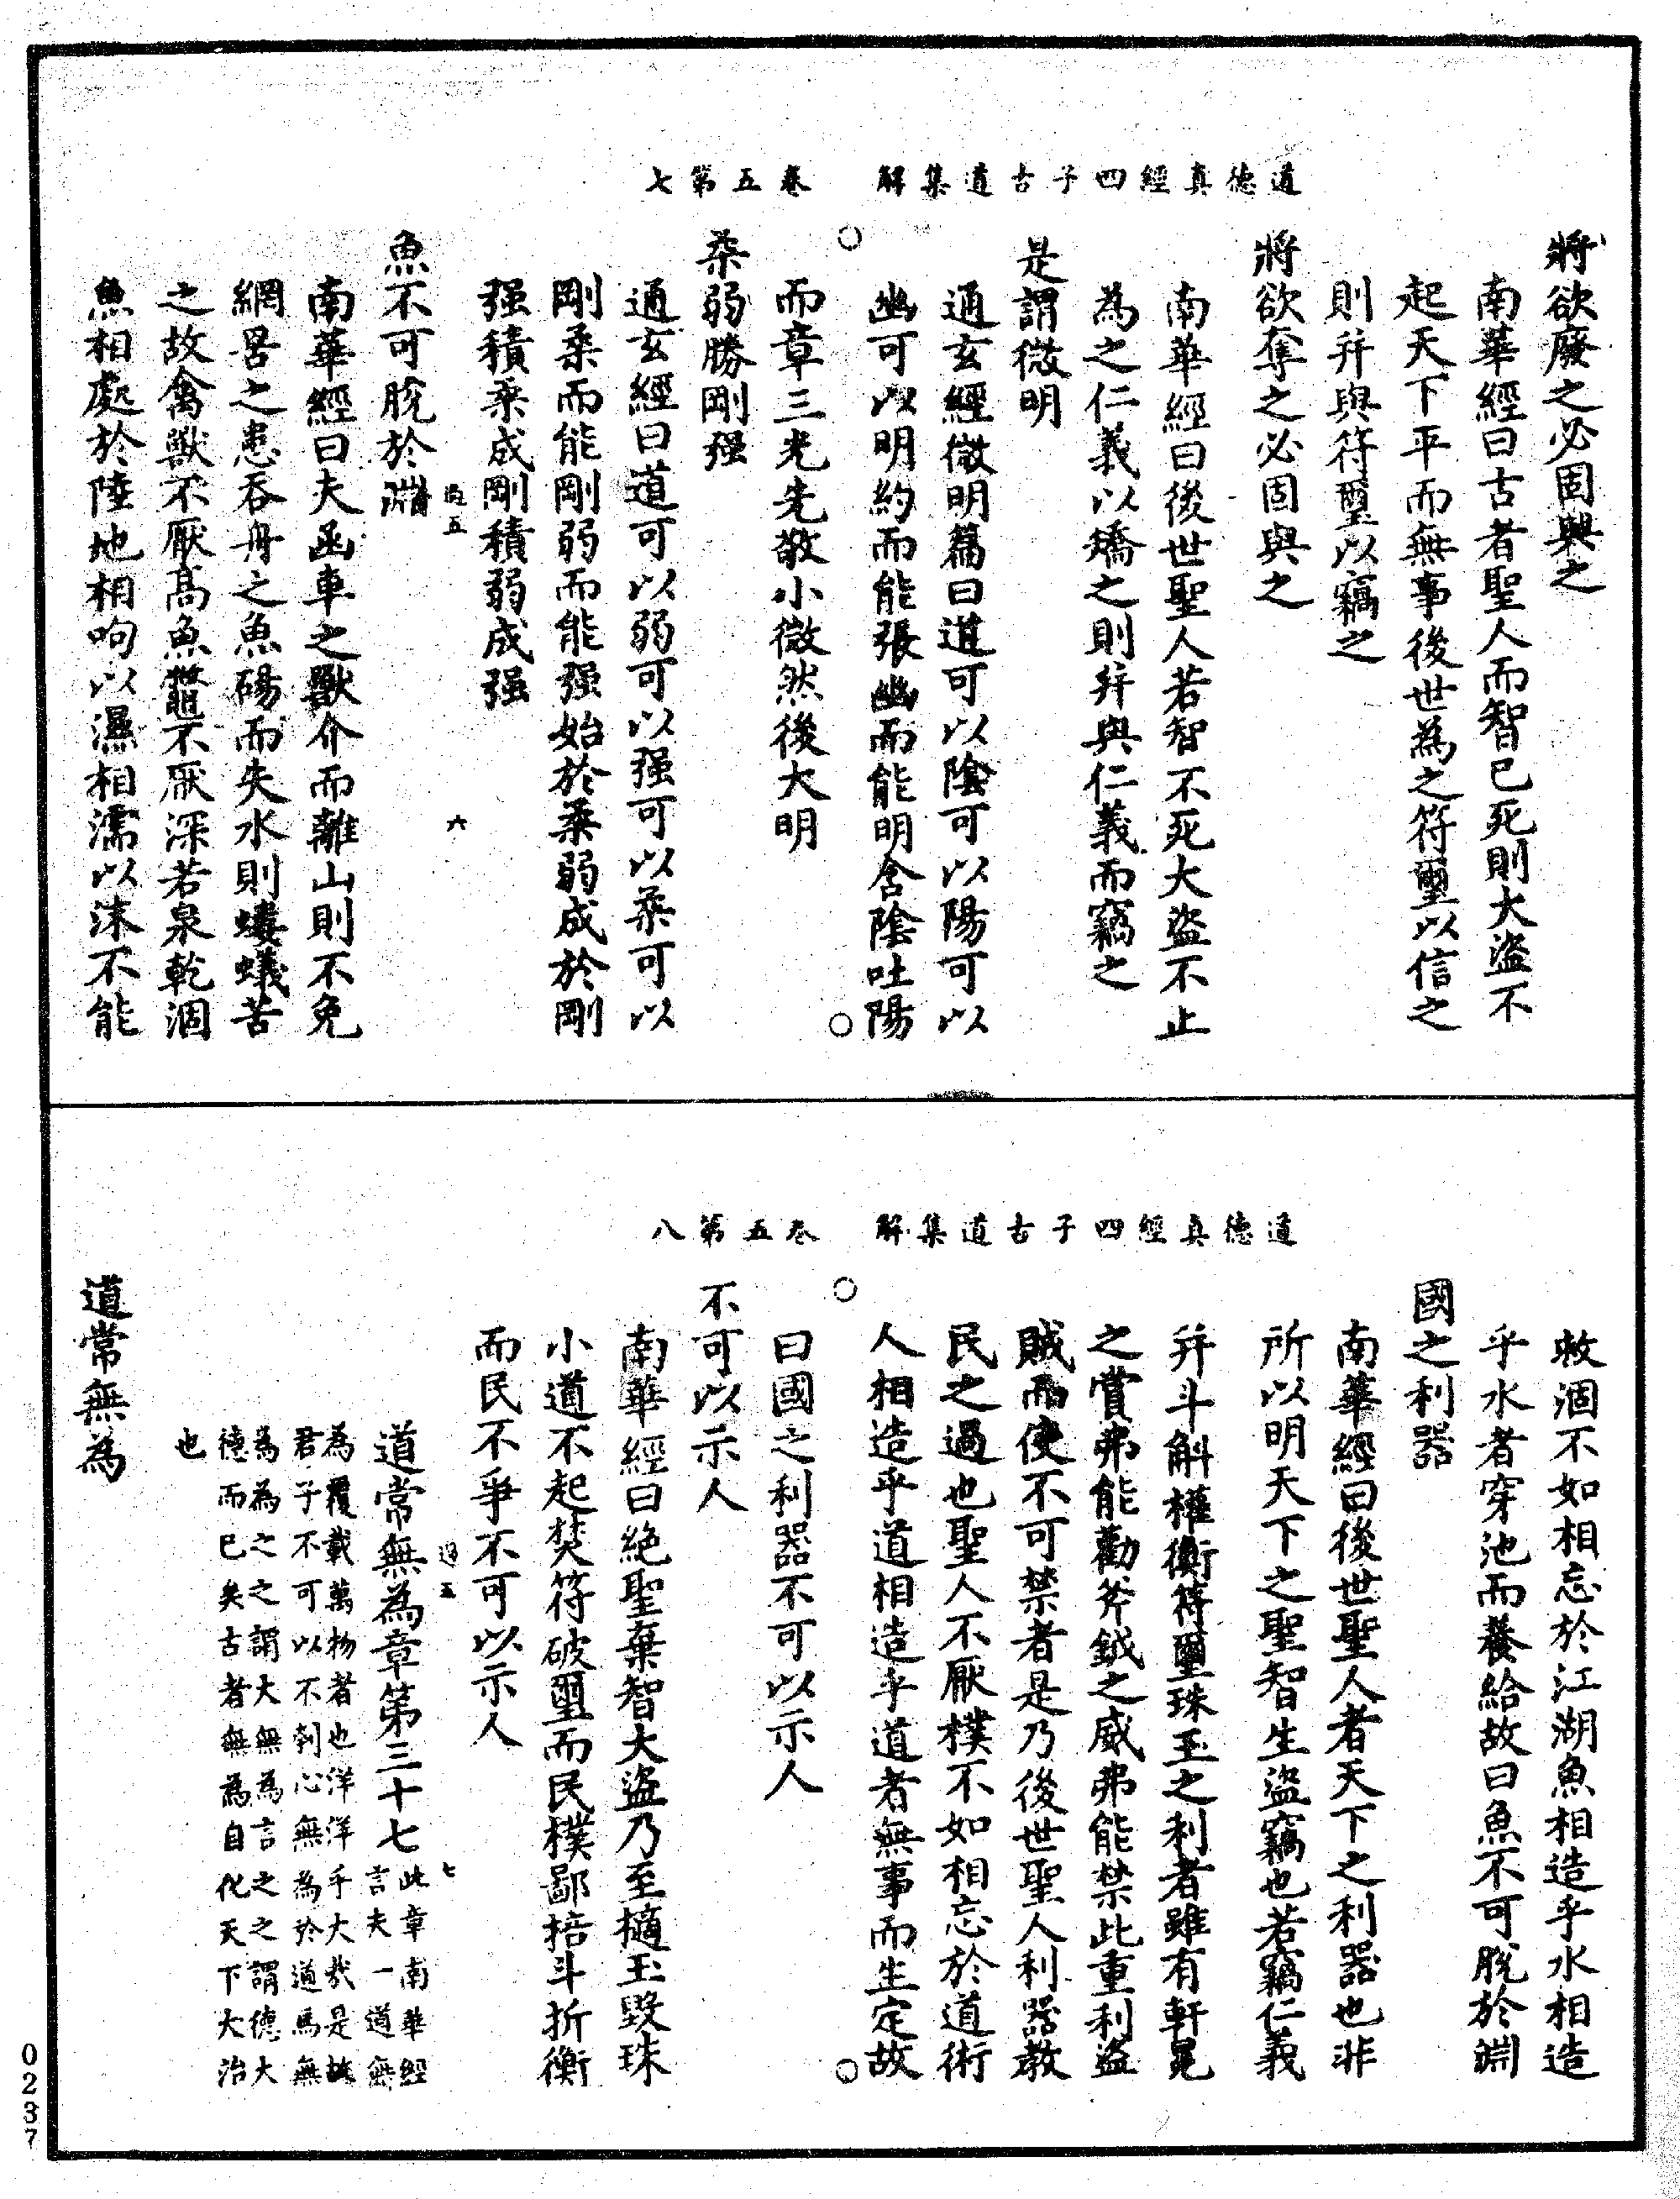 道德真經四子古道集解　卷五第七
將欲廢之必固興之
南華經曰古者聖人而智已死則大盜不
起天下平而無事後世為之符璽以信之
則并與符璽以竊之
將欲奪之必固與之
南華經曰後世聖人若智不死大盜不止
為之仁義以矯之則并與仁義而竊之
是謂微明
通玄經微明篇曰道可以陰可以陽可以
幽可以明約而能張幽而能明含陰吐陽
而章三光先敬小微然後大明
柔弱勝剛强
通玄經曰道可以弱可以强可以柔可以
剛柔而能剛弱而能强始於柔弱成於剛
强積柔成剛積弱成强
過五　六
魚不可脫於淵
南華經曰夫函車之獸介而離山則不免
網罟之患吞舟之魚碭而失水則螻蟻苦
之故禽獸不厭高魚鼈不厭深若泉乾涸
魚相處於陸地相呴以濕相濡以沫不能
道德真經四子古道集解　卷五第八
救涸不如相忘於江湖魚相造乎水相造
乎水者穿池而養給故曰魚不可脫於淵
國之利器
南華經曰後世聖人者天下之利器也非
所以明天下之聖智生盜竊也若竊仁義
并斗斛權衡符璽珠玉之利者雖有軒冕
之賞弗能勸斧鉞之威弗能禁此重利盜
賊而使不可禁者是乃後世聖人利器教
民之過也聖人不厭樸不如相忘於道術
人相造乎道相造乎道者無事而生定故
曰國之利器不可以示人
不可以示人
南華經曰絕聖棄智大盜乃至擿玉毀珠
小道不起焚符破璽而民樸鄙掊斗折衡
而民不爭不可以示人
過五　七
道常無為章第三十七
此章南華經
言夫一道無
為覆載萬物者也洋洋乎大哉是故
君子不可以不刳心無為於道焉無
為為之之謂大無為言之之謂德大
德而已矣古者無為自化天下大治
也
道常無為
0237